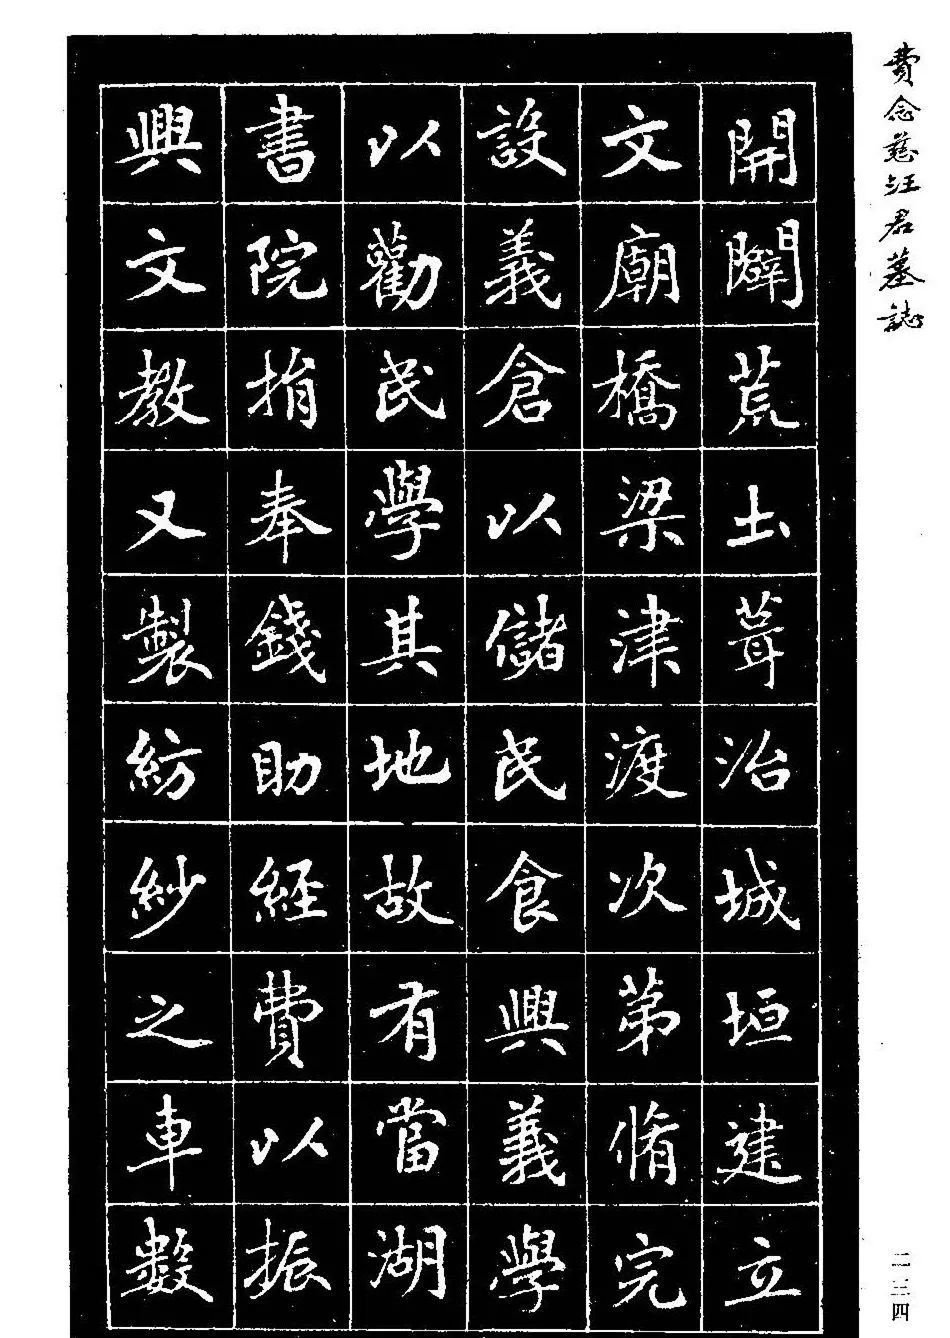 費念慈汪君墓誌
開闢荒土葺治城垣建立
文廟橋梁津渡次第脩完
設義倉以儲民食興義學
以勸民學其地故有當湖
書院捐奉錢助経費以振
興文教又製紡紗之車數
二三四